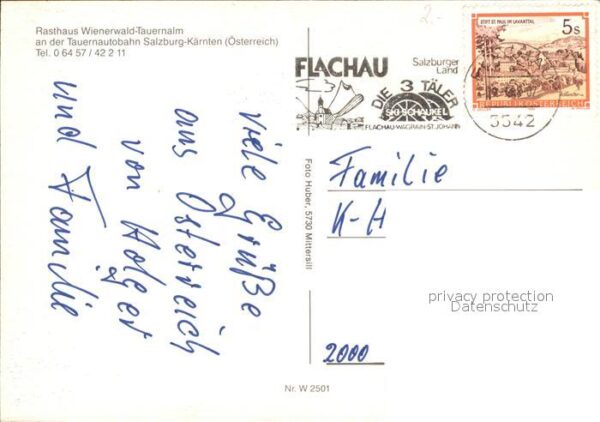 Rasthaus Wienerwald-Tauernalm
an der Tauernautobahn Salzburg-Kärnten (Österreich)
Tel. 0 64 57 / 42 2 11
2.-
FLACHAU
Salzburger
Land
DIE 3 TÄLER
SKI-SCHAUKEL
FLACHAU-WAGRAIN-ST.JOHANN
STIFT ST. PAUL IM LAVANTTAL
5s
REPUBLIK ÖSTERREICH
5542
viele Grüße
aus Österreich
von Holger
und Familie
Foto Huber, 5730 Mittersill
Familie
K-H
privacy protection
Datenschutz
2000
Nr. W 2501